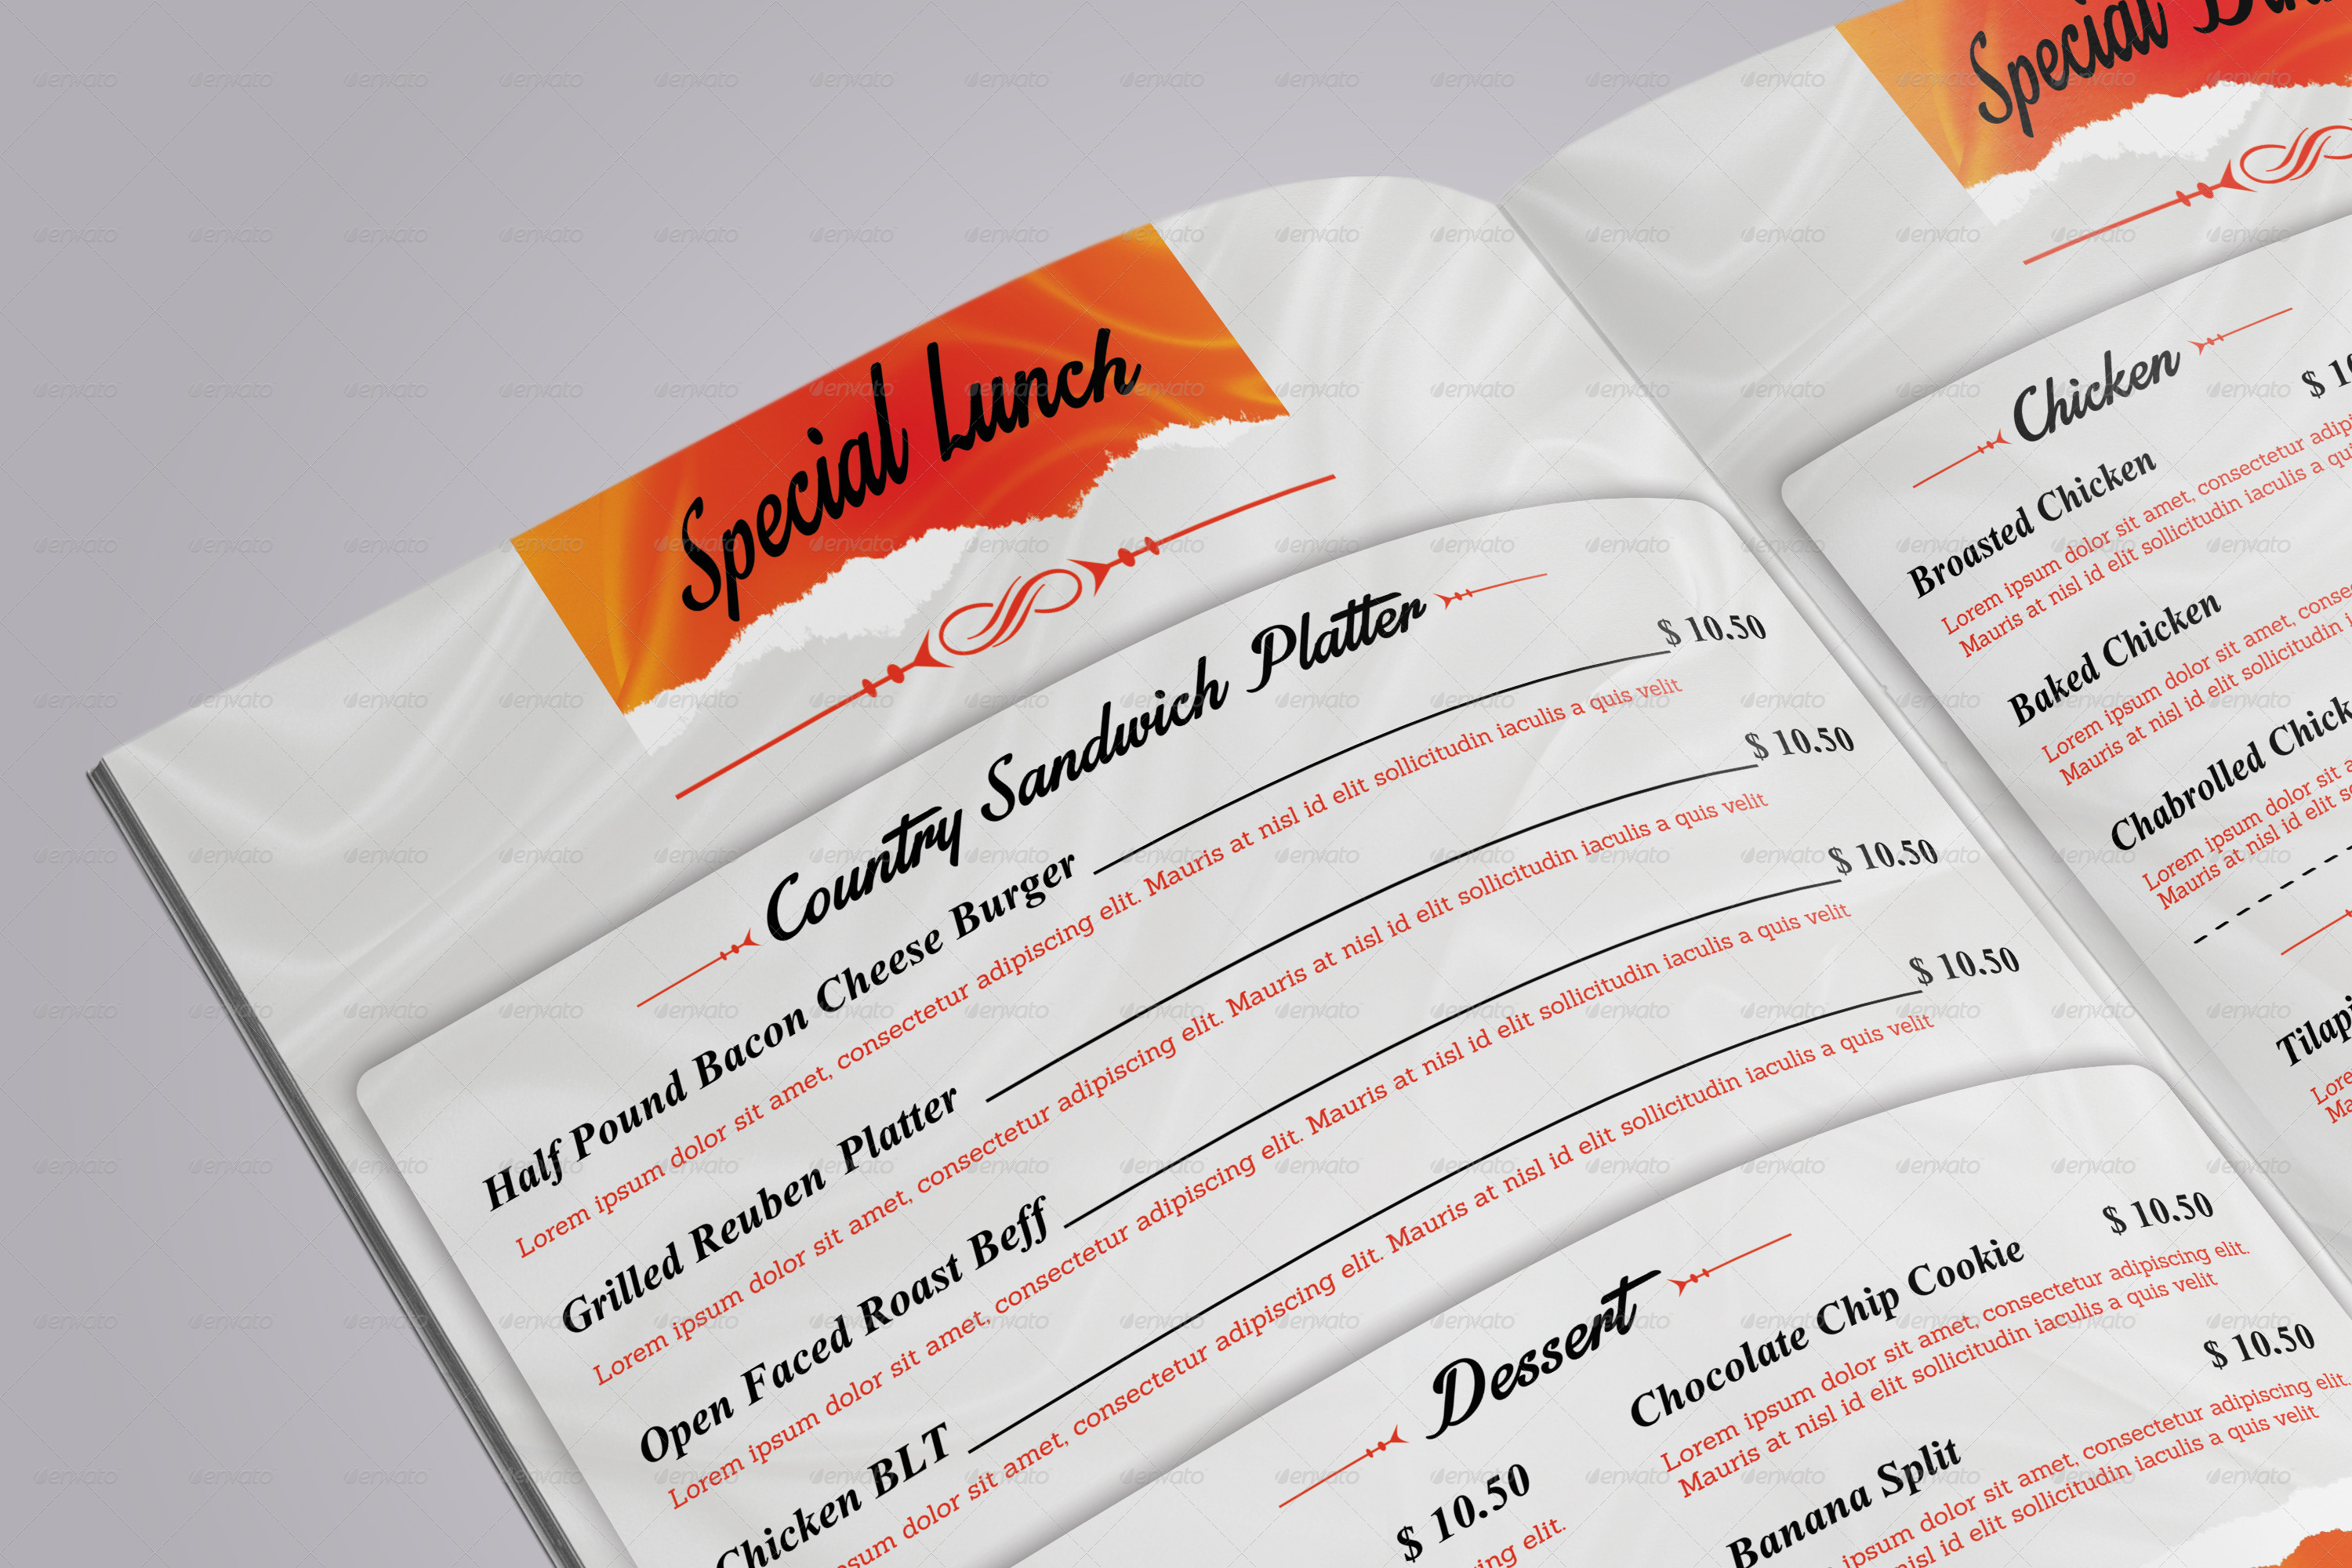 Special Lunch
Country Sandwich Platter
Half Pound Bacon Cheese Burger $ 10.50
Lorem ipsum dolor sit amet, consectetur adipiscing elit. Mauris at nisl id elit sollicitudin iaculis a quis velit
Grilled Reuben Platter $ 10.50
Lorem ipsum dolor sit amet, consectetur adipiscing elit. Mauris at nisl id elit sollicitudin iaculis a quis velit
Open Faced Roast Beff $ 10.50
Lorem ipsum dolor sit amet, consectetur adipiscing elit. Mauris at nisl id elit sollicitudin iaculis a quis velit
Chicken BLT $ 10.50
dolor sit amet, consectetur adipiscing elit. Mauris at nisl id elit sollicitudin iaculis a quis velit
Dessert
$ 10.50
elit.
Chocolate Chip Cookie $ 10.50
Lorem ipsum dolor sit amet, consectetur adipiscing elit.
Mauris at nisl id elit sollicitudin iaculis a quis velit
Banana Split $ 10.50
ipsum dolor sit amet, consectetur adipiscing elit.
nisl id elit sollicitudin iaculis a quis velit
Special
Chicken
Broasted Chicken
Lorem ipsum dolor sit amet, consectetur
Mauris at nisl id elit sollicitudin iaculis a
Baked Chicken
Lorem ipsum dolor sit amet,
Mauris at nisl id elit sollicitudin
Chabrolled
Lorem ipsum dolor sit
Mauris at nisl id elit
envato